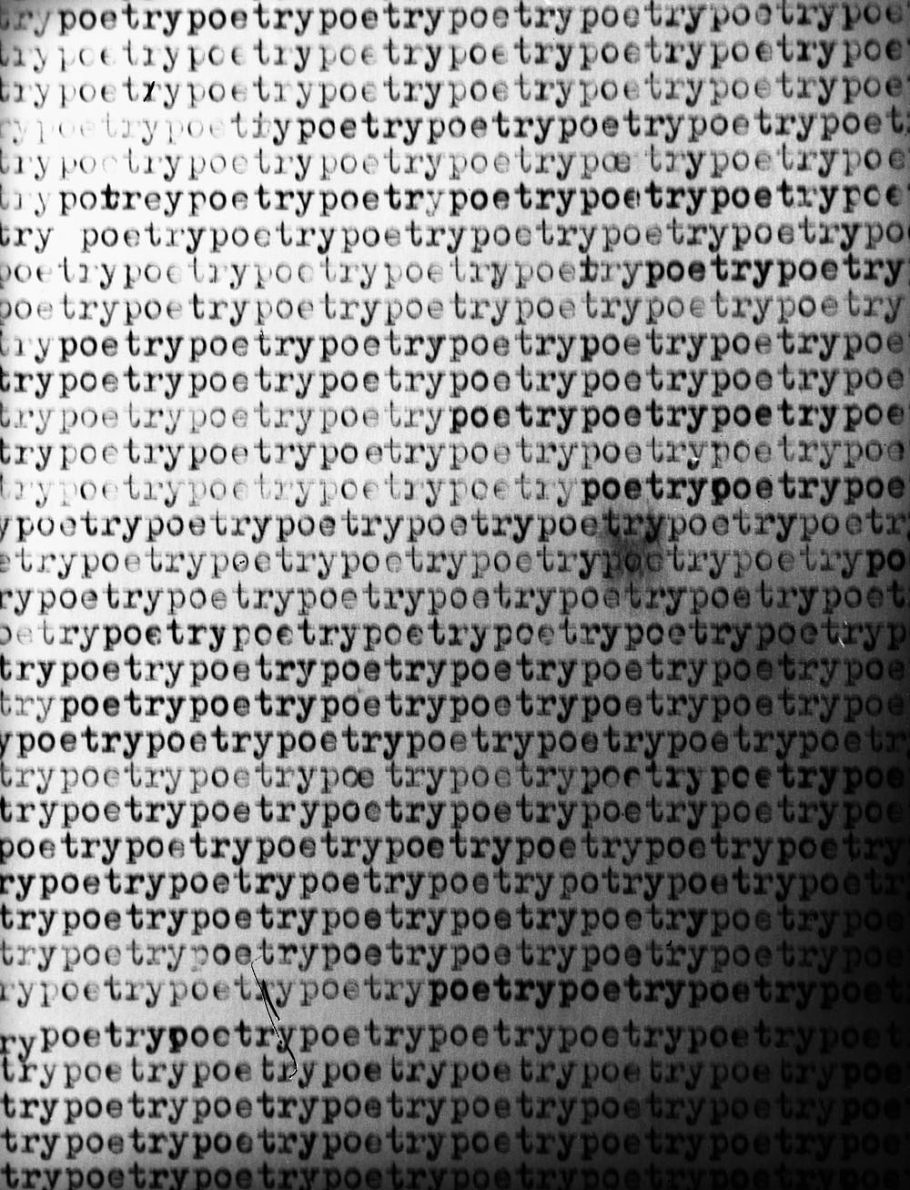 trypoetrypoetrypoetrypoetrypoetrypoetrypoe
trypoetrypoetrypoetrypoetrypoetrypoetrypoe
trypoetrypoetrypoetrypoetrypoetrypoetrypoe
rypoetrypoetrypoetrypoetrypoetrypoetrypoet
trypoetrypoetrypoetrypoetrypœ trypoetrypoe
trypotreypoetrypoetrypoetrypoetrypoetrypoe
try poetrypoetrypoetrypoetrypoetrypoetrypo
poetrypoetrypoetrypoetrypoetrypoetrypoetry
poetrypoetrypoetrypoetrypoetrypoetrypoetry
trypoetrypoetrypoetrypoetrypoetrypoetrypoe
trypoetrypoetrypoetrypoetrypoetrypoetrypoe
trypoetrypoetrypoetrypoetrypoetrypoetrypoe
trypoetrypoetrypoetrypoetrypoetrypoetrypoe
trypoetrypoetrypoetrypoetrypoetrypoetrypoe
ypoetrypoetrypoetrypoetrypoetrypoetrypoetr
etrypoetrypoetrypoetrypoetrypoetrypoetrypo
rypoetrypoetrypoetrypoetrypoetrypoetrypoet
oetrypoetrypoetrypoetrypoetrypoetrypoetryp
trypoetrypoetrypoetrypoetrypoetrypoetrypoe
trypoetrypoetrypoetrypoetrypoetrypoetrypoe
ypoetrypoetrypoetrypoetrypoetrypoetrypoetr
trypoetrypoetrypœ trypoetrypoetrypoetrypoe
trypoetrypoetrypoetrypoetrypoetrypoetrypoe
poetrypoetrypoetrypoetrypoetrypoetrypoetry
rypoetrypoetrypoetrypoetrypotrypoetrypoetr
trypoetrypoetrypoetrypoetrypoetrypoetrypoe
trypoetrypoetrypoetrypoetrypoetrypoetrypoe
rypoetrypoetrypoetrypoetrypoetrypoetrypoet
rypoetrypoetrypoetrypoetrypoetrypoetrypoet
trypoetrypoetrypoetrypoetrypoetrypoetrypoe
trypoetrypoetrypoetrypoetrypoetrypoetrypoe
trypoetrypoetrypoetrypoetrypoetrypoetrypoe
trypoetrypoetrypoetrypoetrypoetrypoetrypoe